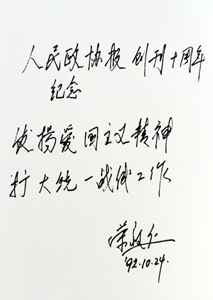 人民政协报创刊十周年
纪念
发扬爱国主义精神
扩大统一战线工作
荣毅仁
92.10.24.